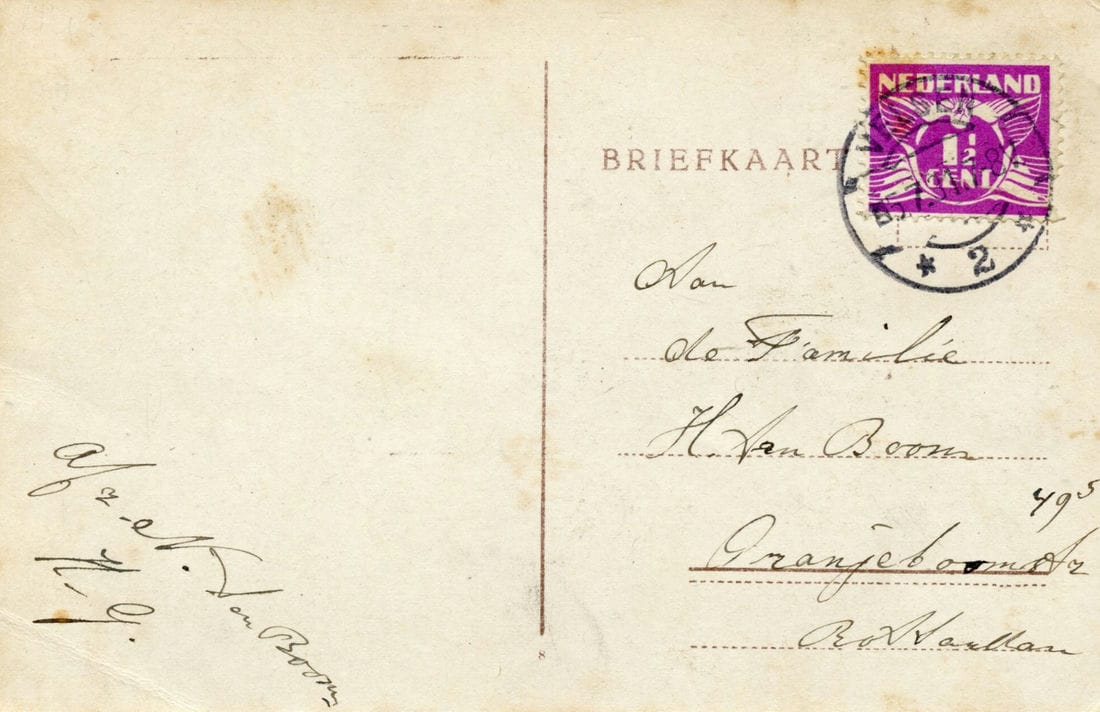 BRIEFKAART
NEDERLAND
1½
CENT
2
Aan
de Familie
H. van Boom
49⁵
Oranjeboomstr
Rotterdam
Afz. N. van Boom